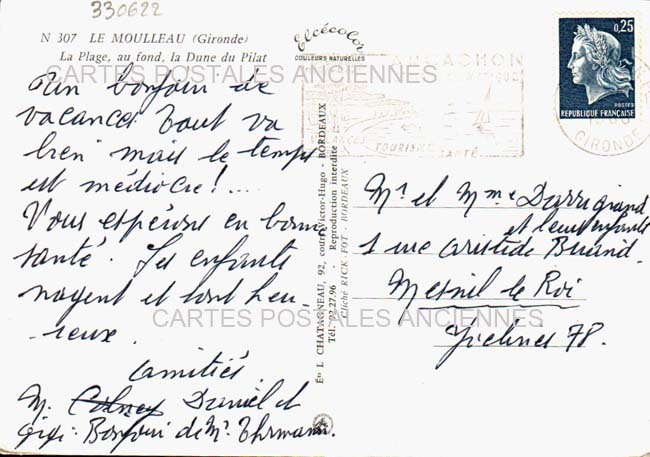 330622
N 307 LE MOULLEAU (Gironde)
La Plage, au fond, la Dune du Pilat
CARTES POSTALES ANCIENNES
Un bonjour de
vacances tout va
bien mais le temps
est médiocre !....
Vous espérons en bonne
santé. Les enfants
nagent et sont heu-
reux.
CARTES POSTALES ANCIENNES
Amitiés
M. Daniel et
Gigi. Bonjour de Mr
Elcécolor
COULEURS NATURELLES
Éts L. CHATAGNEAU, 92, cours Victor-Hugo - BORDEAUX
Tél. 92.27.96 - Reproduction interdite
Cliché RICK-FOT - BORDEAUX
ARCACHON
TOURISME SANTÉ
0,25
POSTES
REPUBLIQUE FRANÇAISE
GIRONDE
Mr et Mme Darrigrand
et leurs enfants
1 rue Aristide Briand
Mesnil le Roi
Yvelines 78.